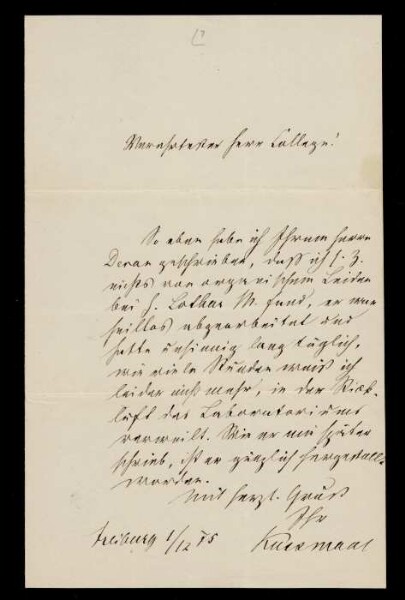 Verehrtester Herr College!
So eben habe ich Ihrem Herrn
Decan geschrieben, dass ich s. Z.
nichts von organischem Leiden
bei H. Lothar M. fand, er war
heillos abgearbeitet und
hatte unsinnig lang täglich,
wie viele Stunden weiß ich
leider nicht mehr, in der Stick-
luft des Laboratoriums
verweilt. Wie er mir später
schrieb, ist er gänzlich hergestellt
worden.
Mit herzl. Gruß
Ihr
Kussmaul
Freiburg 1/12 75